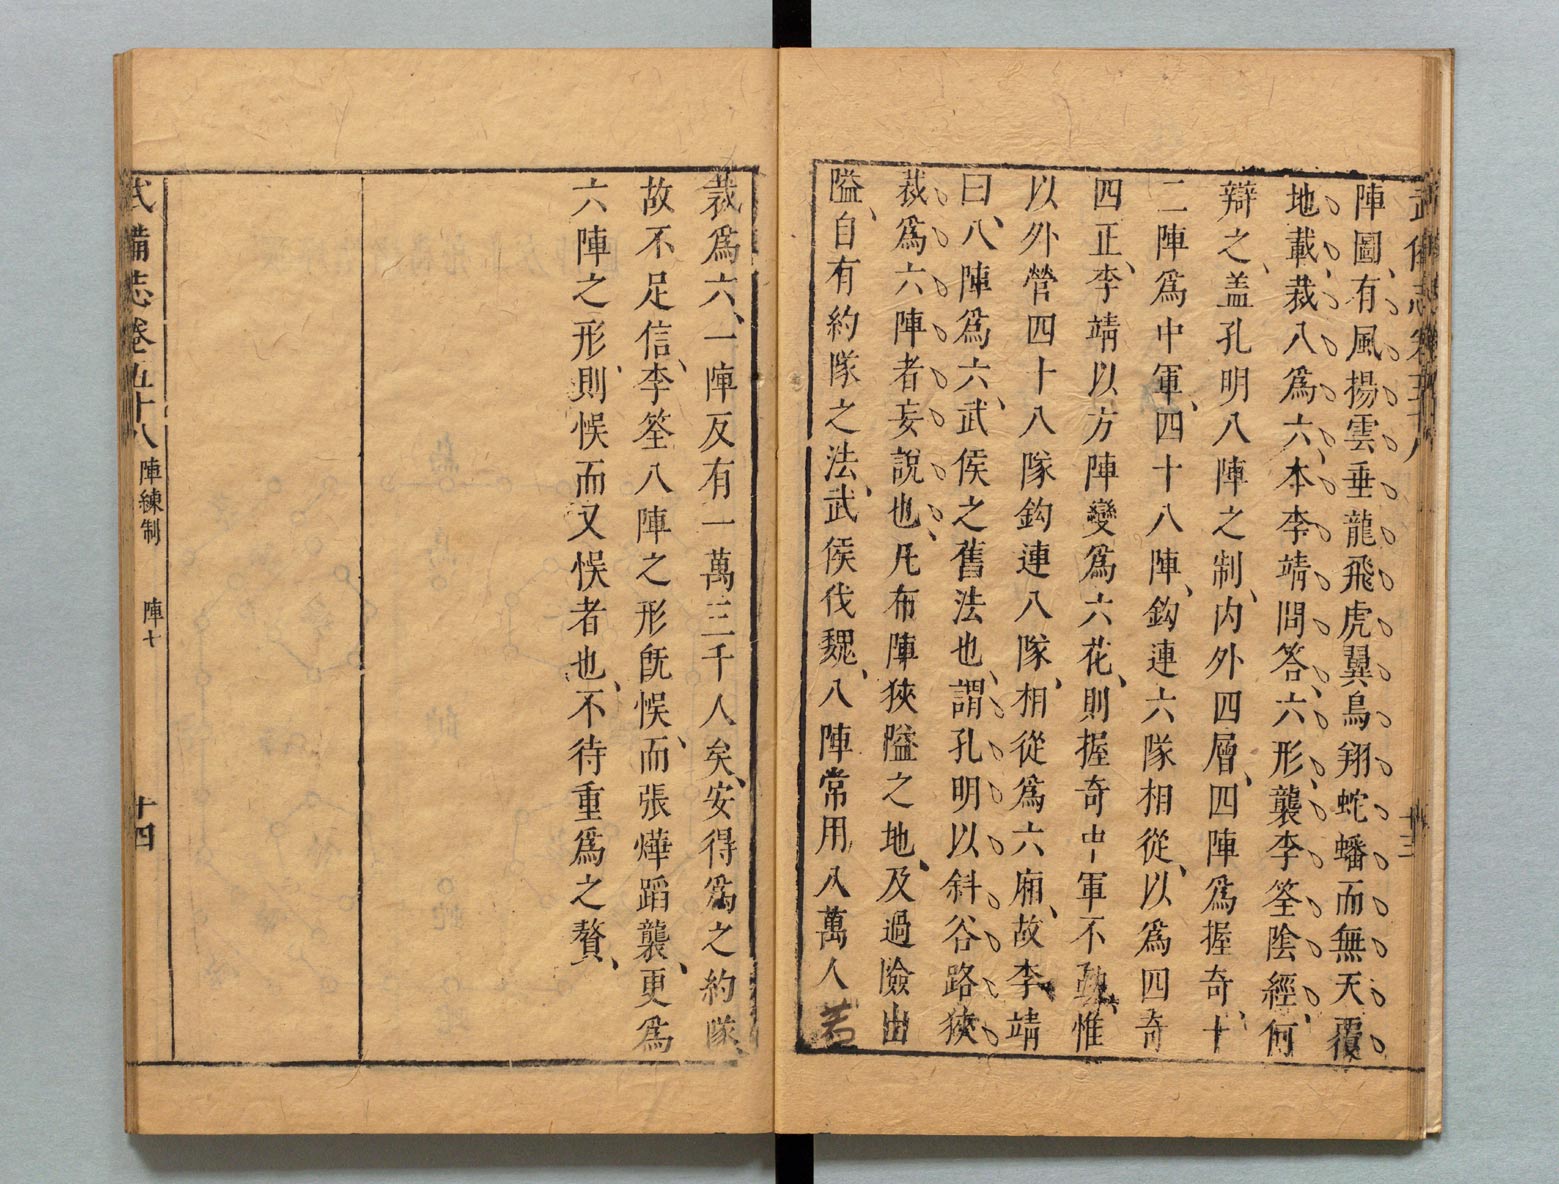 武備志卷五十八
十三
陣圖、有風揚雲垂龍飛虎翼鳥翔蛇蟠而無天覆
地載、裁八爲六、本李靖問答、六形、襲李筌陰經、何
辯之、盖孔明八陣之制、内外四層、四陣爲握奇、十
二陣爲中軍、四十八陣、鈎連六隊相從、以爲四奇
四正、李靖以方陣變爲六花、則握奇中軍不動、惟
以外營四十八隊鈎連八隊、相從爲六廂、故李靖
曰、八陣爲六、武侯之舊法也、謂孔明以斜谷路狹
裁爲六陣者妄說也、凡布陣狹隘之地、及過險出
隘、自有約隊之法、武侯伐魏、八陣常用八萬人若
裁爲六、一陣反有一萬三千人矣、安得爲之約隊、
故不足信、李筌八陣之形旣悮、而張燁蹈襲、更爲
六陣之形、則悮而又悮者也、不待重爲之贅、
武備志卷五十八 陣練制 陣七 十四